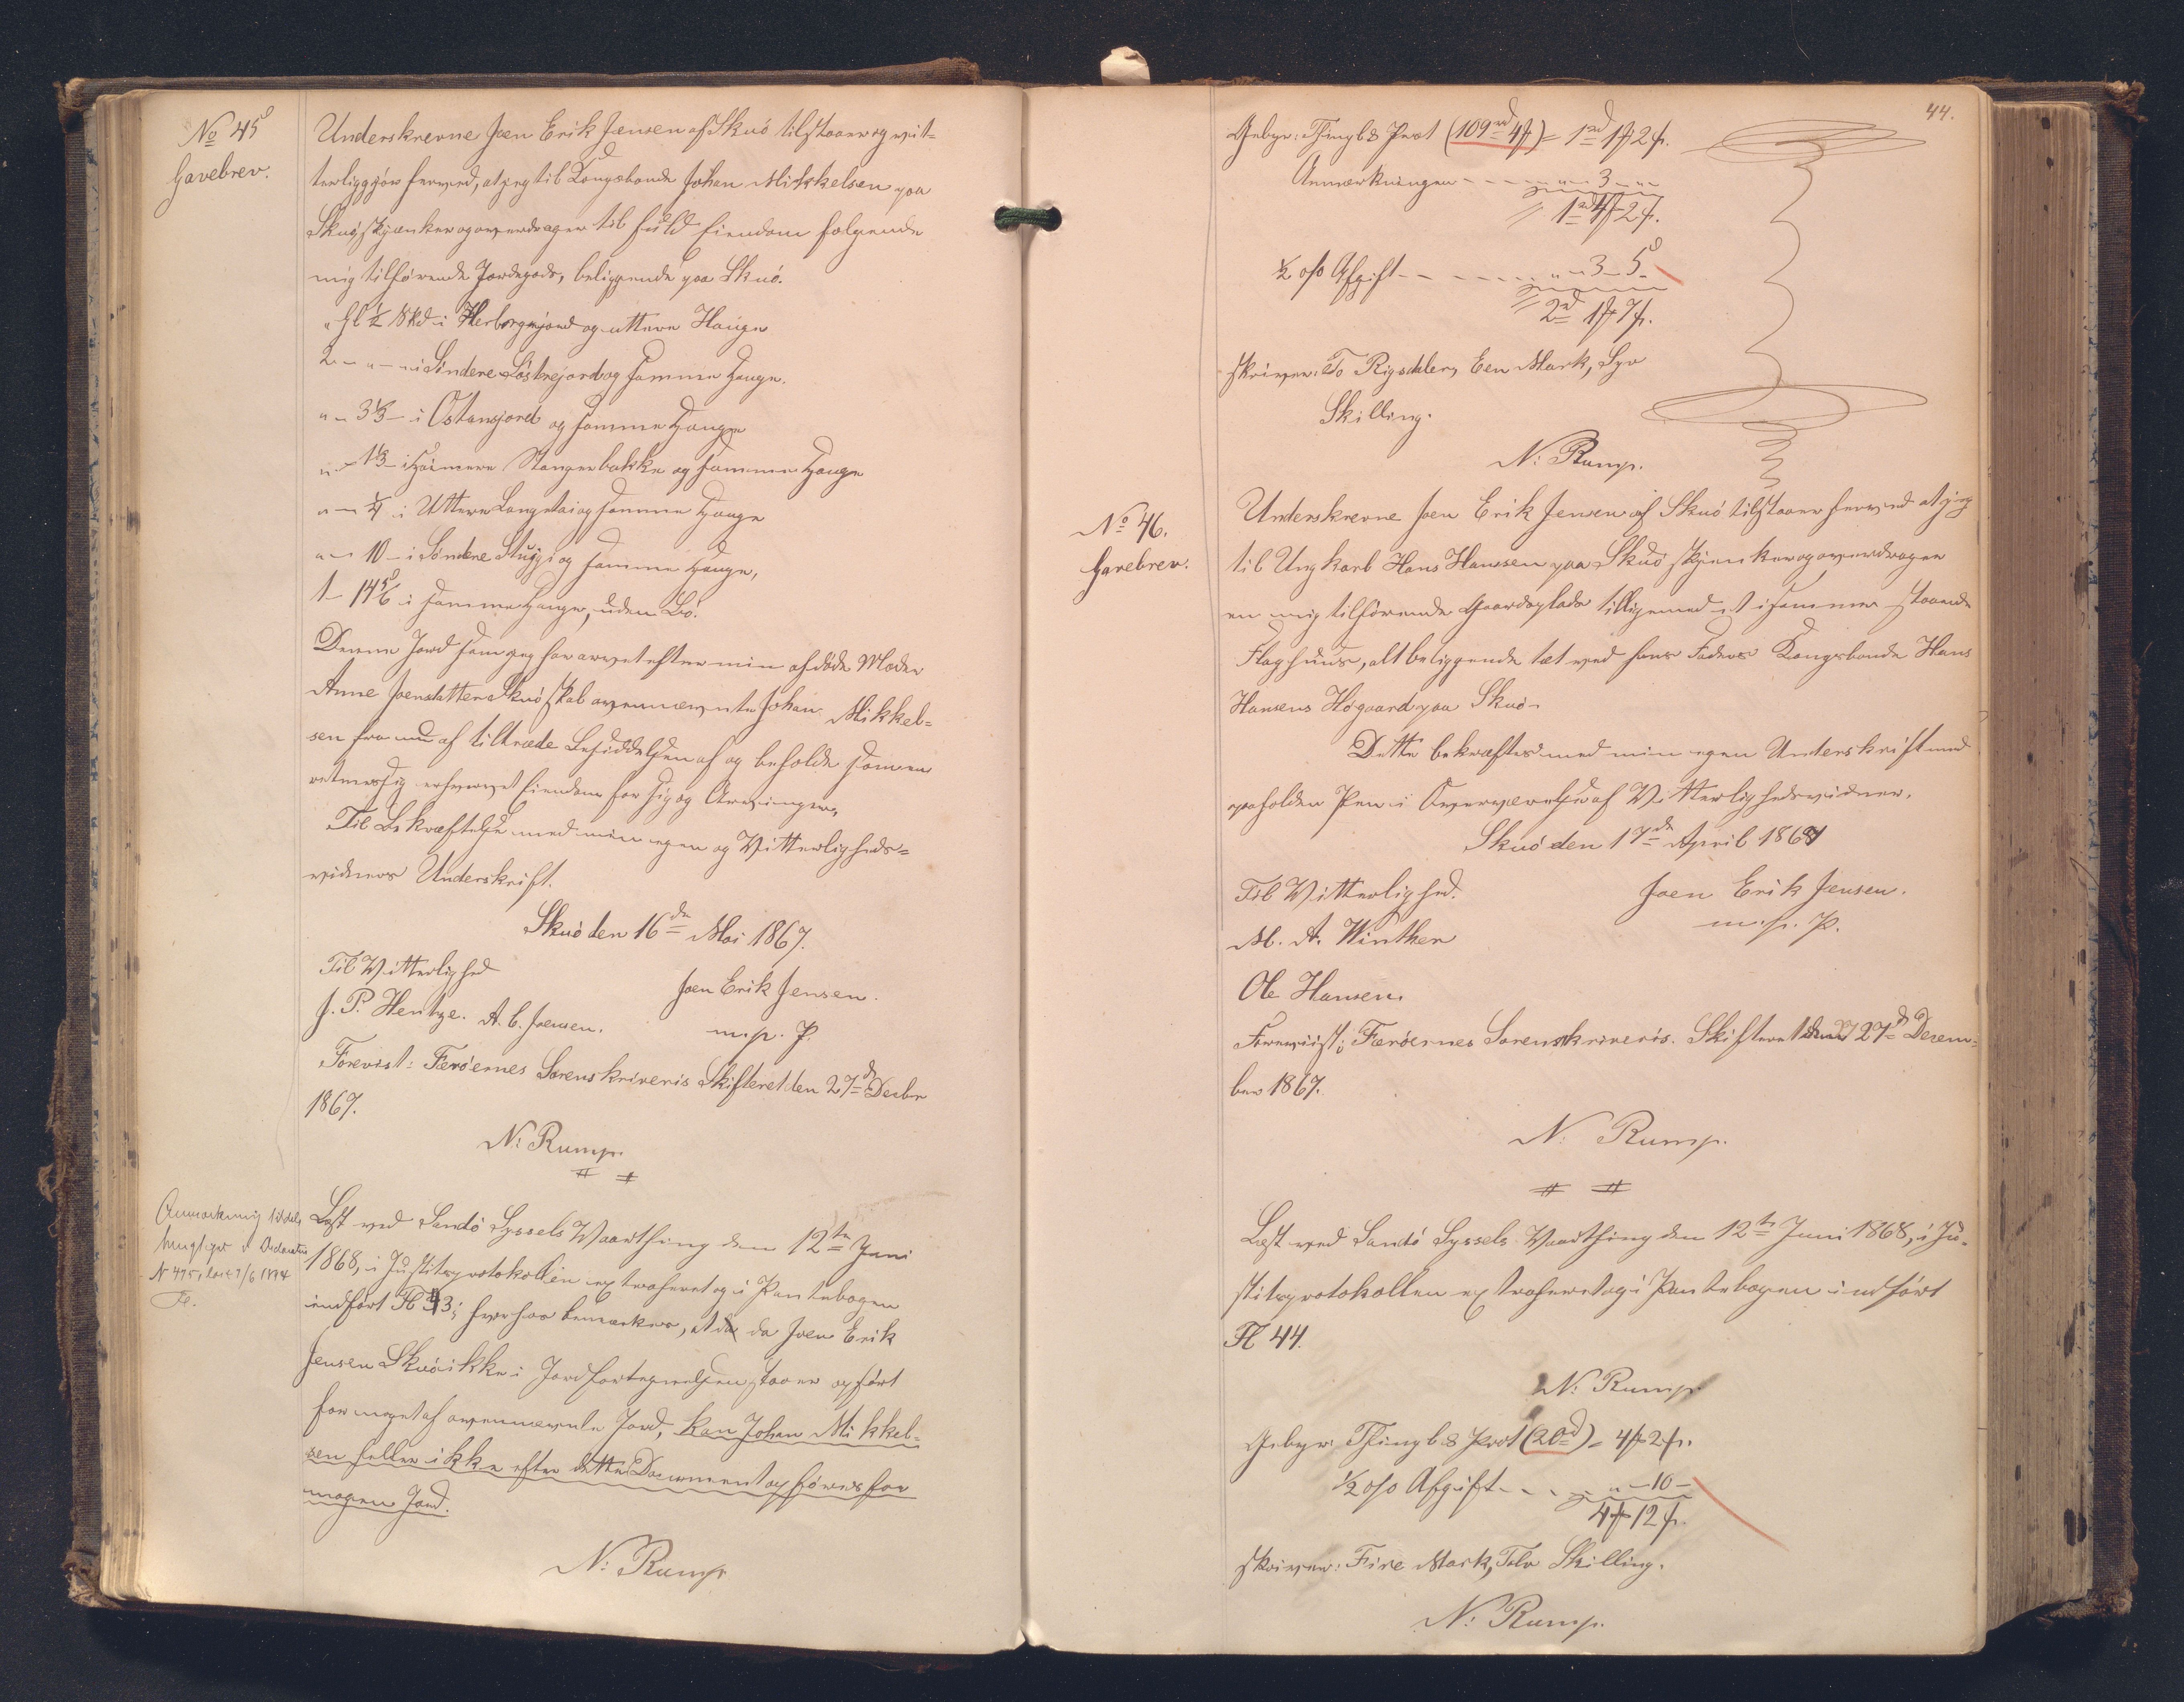 No 45
Gavebrev.
Underskrevne Joen Erik Jensen af Skuö tilstaaer og vit-
terliggjör herved, at jeg til Kongsbonde Johan Mikkelsen paa
Skuö skjænker og overdrager til fuld Eiendom følgende
mig tilhörende Jordegods, beliggende paa Skuö.
" Gl ½ Skd i Herborgnjord og uttere Hauge
2 - " - i Sindere Löstrejord og samme Hauge.
" - 3⅓ - i Østansjord og samme Hauge
" - 1⅓ - i Heimere Stangerbakke og samme Hauge
" - ¼ i Uttere Langetai og samme Hauge
" - 10 - i Söndere Stuggi og samme Hauge,
1 - 14⅚ i samme Hauge, uden Bö.
Denne Jord som jeg har arvet efter min afdøde Moder
Anne Joensdatter Skuö skal ovennævnte Johan Mikkel-
sen fra nu af tiltræde Besiddelsen af og beholde som en
retmæssig erhvervet Eiendom for sig og Arvinger.
Til Bekræftelse med min egen og Vitterligheds-
vidners Underskrift.
Skuö den 16de Mai 1867.
Til Vitterlighed
Joen Erik Jensen.
J. P. Hentze. A. C. Joensen.
m. p. P.
Forevist: Færöernes Sorenskriveris Skifteret den 27d Decbr
1867.
N: Rump.
Læst ved Sandö Syssels Vaarthing den 12te Juni
1868, i Justitsprotokollen extraheret og i Pantebogen
indfört Fl 43; hvorhos bemærkes, at da da Joen Erik
Jensen Skuö ikke i Jordfortegnelsen staaer opfört
for noget af ovennævnte Jord, kan Johan Mikkel-
sen heller ikke efter dette Document opföres for
nogen Jord.
N: Rump
Anmærkning tildels
No 475, læst 9/6 1874
44.
Gebyr: Thingl & Prot (109rd 4ß) = 1rd 1ß 2ß.
Anmærkningen - - - - " - 3 - "
1rd 4ß 2ß.
½ o/o Afgift - - - - - " - 3 - 5
2rd 1ß 7ß.
skriver: To Rigsdaler, Een Mark, Syv
Skilling.
N: Rump.
No 46.
Gavebrev.
Underskrevne Joen Erik Jensen af Skuö tilstaaer herved at jeg
til Ungkarl Hans Hansen paa Skuö skjænker og overdrager
en mig tilhörende Gaardsplads tilligemed et i samme staaende
Flaghuus, alt beliggende tæt ved hans Faders Kongsbonde Hans
Hansens Högaard paa Skuö.
Dette bekræftes med min egen Underskrift med
paaholden Pen i Overværelse af Vitterlighedsvidner.
Skuö den 17de April 1867
Til Vitterlighed.
Joen Erik Jensen.
M. A. Winther
m. p. P.
Ole Hansen.
Foreviist i Færöernes Sorenskriveris Skifteret den 27d Decem-
ber 1867.
N: Rump.
Læst ved Sandö Syssels Vaarthing den 12te Juni 1868, i Ju-
stitsprotokollen extraheret og i Pantebogen indfört
Fl 44.
N: Rump
Gebyr: Thingl & Prot (20d) = 4ß 2ß.
½ o/o Afgift - - - " - 10 -
4ß 12ß.
skriver: Fire Mark, Tolv Skilling.
N: Rump.